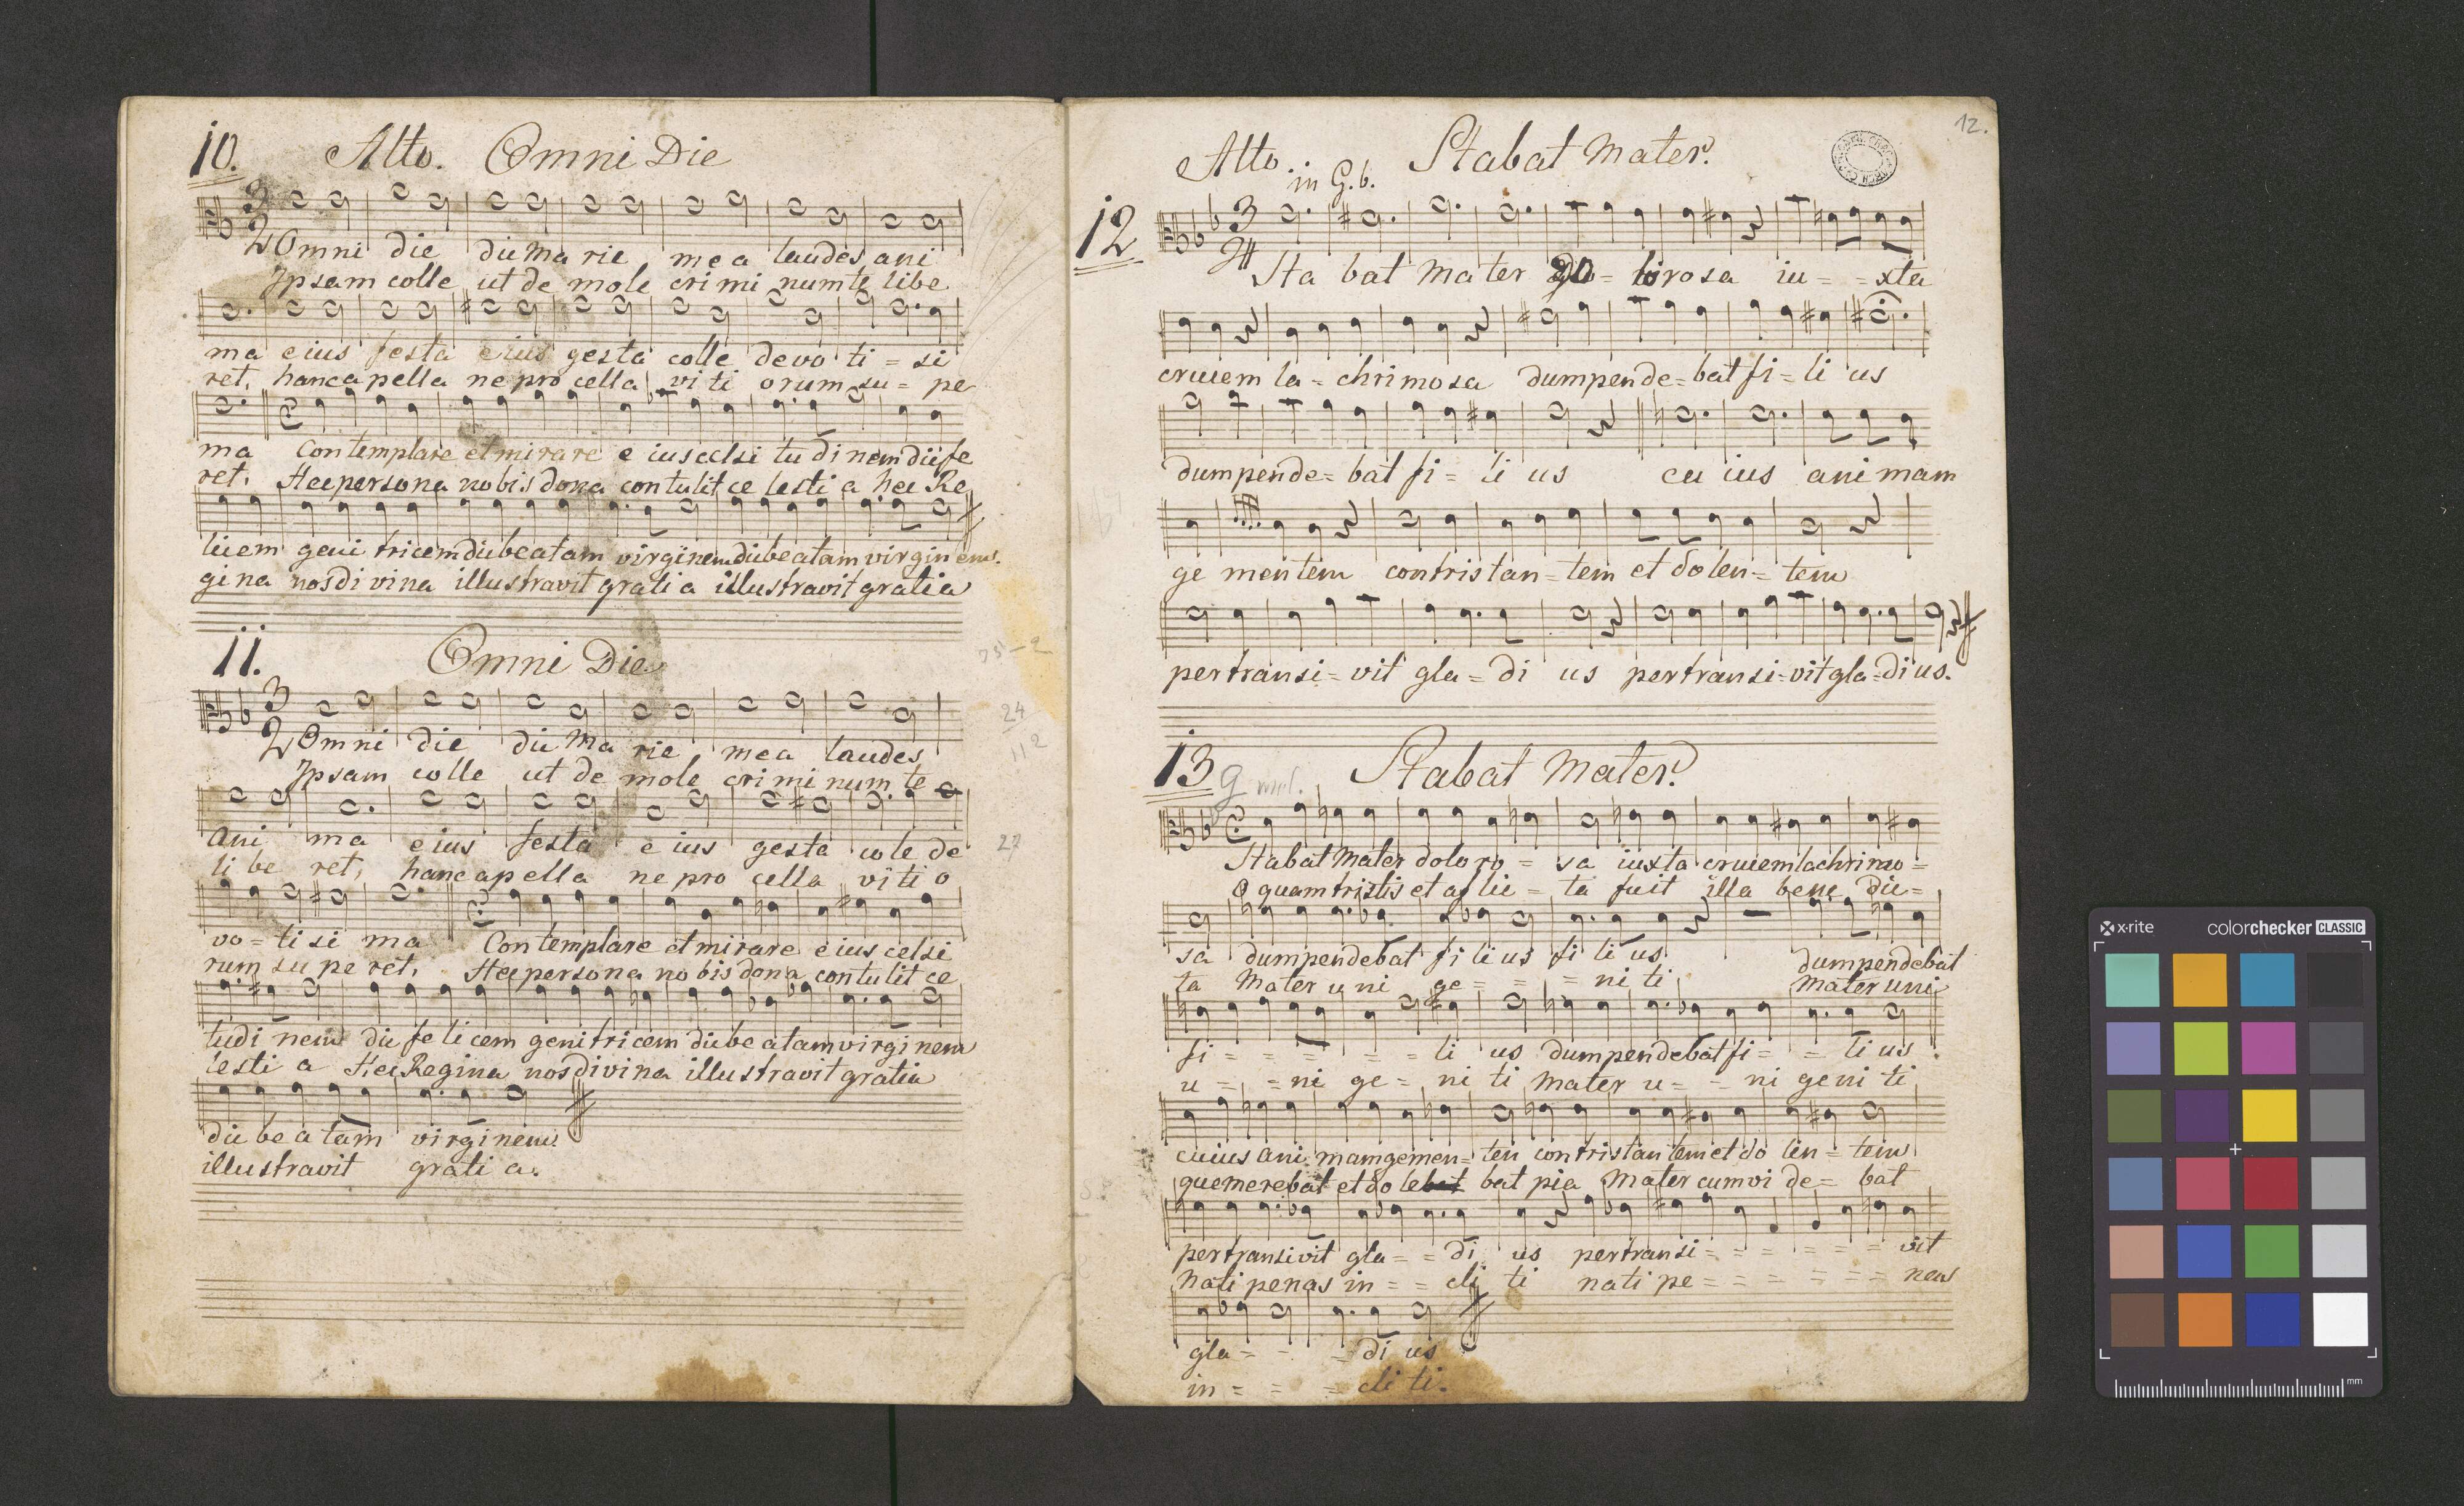 10. Alto. Omni Die
3
2 Omni die dic Ma rie mea laudes ani
Ipsam colle ut de mole crimi num te libe
ma eius festa eius gesta colle devo ti = si
ret, hanc apella ne pro cella viti orum su = pe
ma Contemplare et mirare eius celsi tu di nem dic fe
ret. Hec persona nobis dona contulit ce lesti a hec Re
licem geni tricem dic beatam virginem dic beatam virginem.
gi na nos di vina illustravit grati a illustravit gratia
11. Omni Die
3
2 Omni die dic Ma rie mea laudes
Ipsam colle ut de mole crimi num te
Ani ma eius festa eius gesta cole de
li be ret, hanc apella ne pro cella viti o
vo = ti si ma Contemplare et mirare eius celsi
rum su pe ret. Hec persona nobis dona contulit ce
tudi nem dic fe licem genitricem dic be atam virginem
lesti a Hec Regina nos divina illustravit gratia
dic be a tam virginem.
illustravit grati a.
24
112
27
12.
Alto. in G.b. Stabat Mater.
12
3
Sta bat Mater do = lorosa iu = = xta
crucem la = chrimosa dum pende = bat fi = li us
dum pende = bat fi = li us cu ius ani mam
ge mentem contristan = tem et dolen = tem
pertransi = vit gla = di us pertransi = vit gla = dius.
13 g mol. Stabat Mater.
Stabat Mater doloro = sa iuxta crucem lachrimo =
O quam tristis et aflic = ta fuit illa bene dic =
sa dum pendebat fi li us fi li us dum pendebat
ta Mater u ni ge = = = ni ti Mater uni
fi = = = = = li us dum pendebat fi = = li us.
u = = ni ge = ni ti Mater u = = ni geni ti
cuius ani mam gemen = tem contristan tem et do len = tem
que merebat et do lebat bat pia Mater cum vi de = bat
pertransivit gla = = di us pertransi = = = = = = vit
Nati penas in = = cli ti nati pe = = = = = = nas
gla = - = di us
in = = = cli ti.
x-rite colorchecker CLASSIC
mm